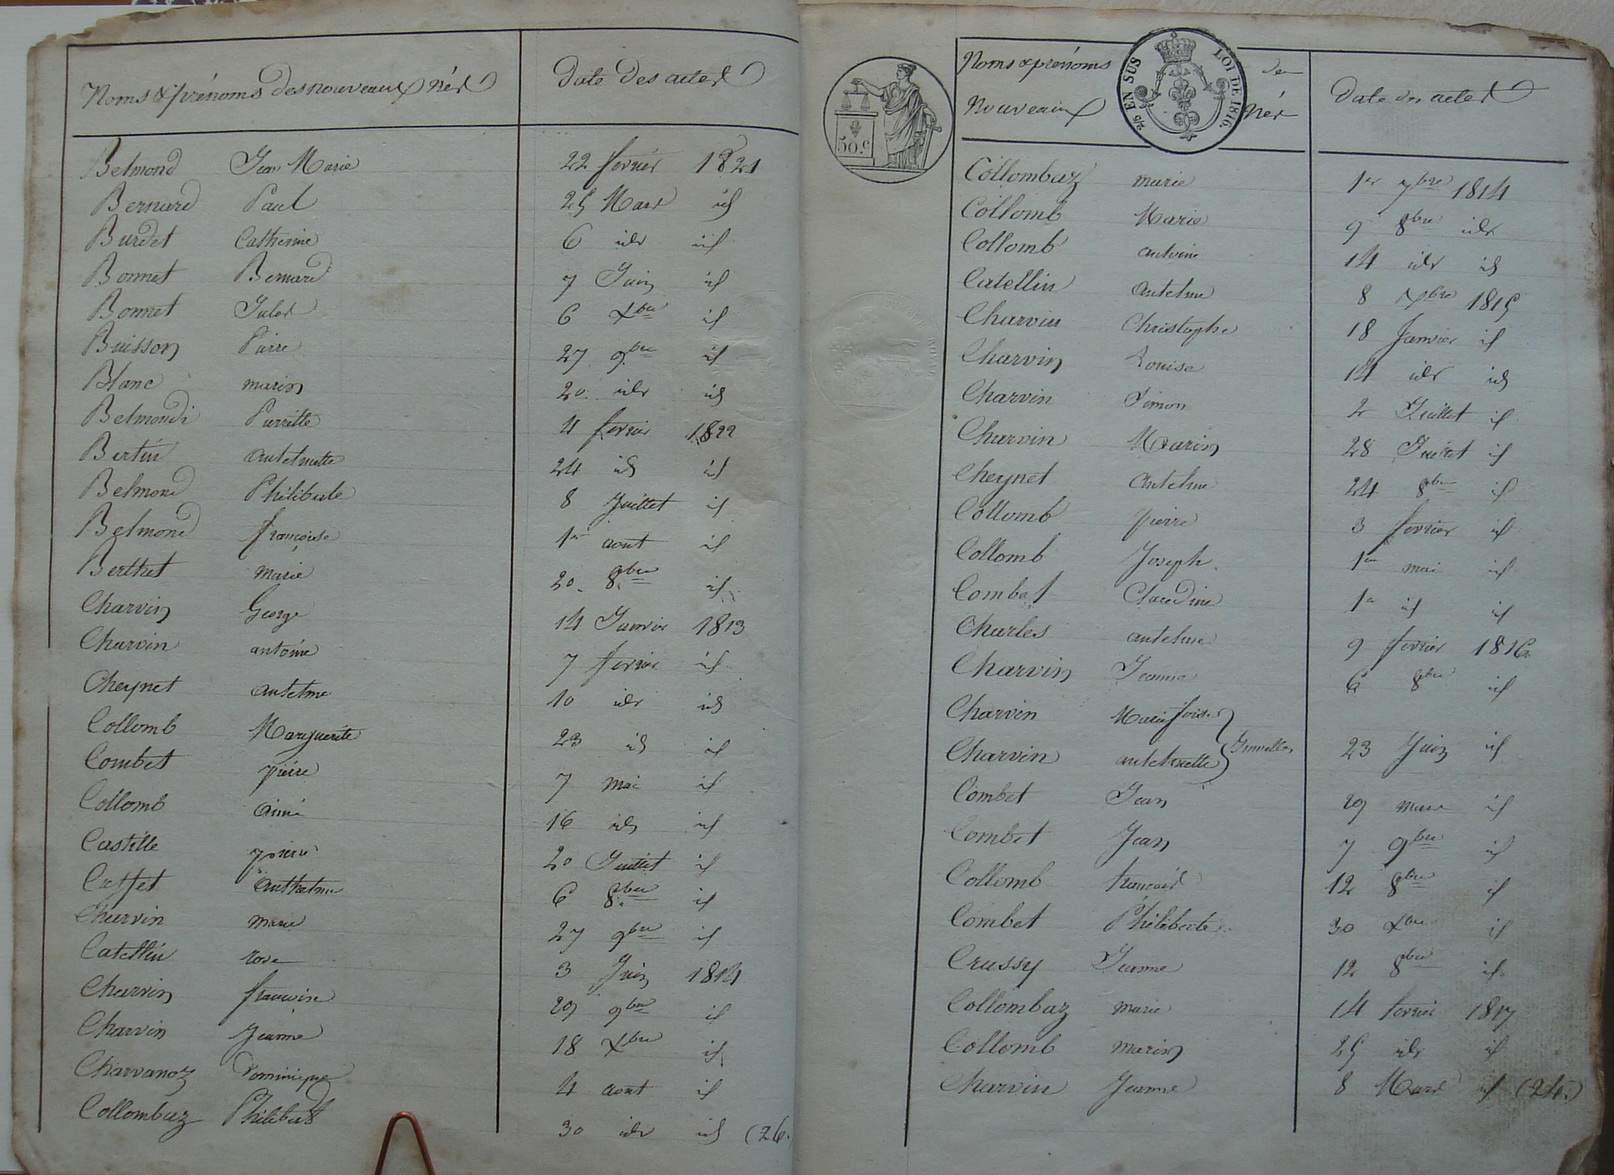 Noms & prénoms des nouveaux nés Date des actes
Belmond Jean Marie 22 fevrier 1821
Bernard Paul 25 Mars id
Burdet Catherine 6 idr id
Bonnet Bernard 7 Juin id
Bonnet Jules 6 Xbre id
Buisson Pierre 27 9bre id
Blanc marin 20 idr id
Belmond Pierrette 4 fevrier 1822
Bertin antelmette 24 id id
Belmond Philiberte 8 Juillet id
Belmond françoise 1er aout id
Berthet marie 20 8bre id
Charvin George 14 Janvier 1813
Charvin antoine 7 fevrier id
Cheynet antelme 10 idr id
Collomb Marguerite 23 id id
Combet pierre 7 mai id
Collomb Aimé 16 id id
Castille pierre 20 Juillet id
Caffet Anthelme 6 8bre id
Charvin marie 27 9bre id
Catellin rose 3 Juin 1814
Charvin francoise 29 9bre id
Charvin Jeanne 18 Xbre id
Charvanoz Dominique 4 aout id
Collombaz Philibert 30 idr id (26.
50.c
2/5 EN SUS LOI DE 1816.
Noms & prénoms de
Nouveaux nés Date des actes
Collombaz marie 1er 7bre 1814
Collomb Marie 9 8bre idr
Collomb antoine 14 idr id
Catellin Antelme 8 Xbre 1815
Charvin Christophe 18 Janvier id
Charvin Louise 14 idr id
Charvin Simon 2 Juillet id
Charvin Marin 28 Juillet id
Cheynet Antelme 24 8bre id
Collomb pierre 3 fevrier id
Collomb Joseph 1er mai id
Combet Claudine 1er id id
Charles antelme 9 fevrier 1816
Charvin Jeanne 6 8bre id
Charvin Marie foise
Charvin antelmette Jumelles 23 Juin id
Combet Jean 29 mars id
Combet Jean 7 9bre id
Collomb francois 12 8bre id
Combet Philiberte 30 Xbre id
Crussy Jeanne 12 8bre id
Collombaz marie 14 fevrier 1817
Collomb marin 25 idr id
Charvin Jeanne 8 Mars id (24.)